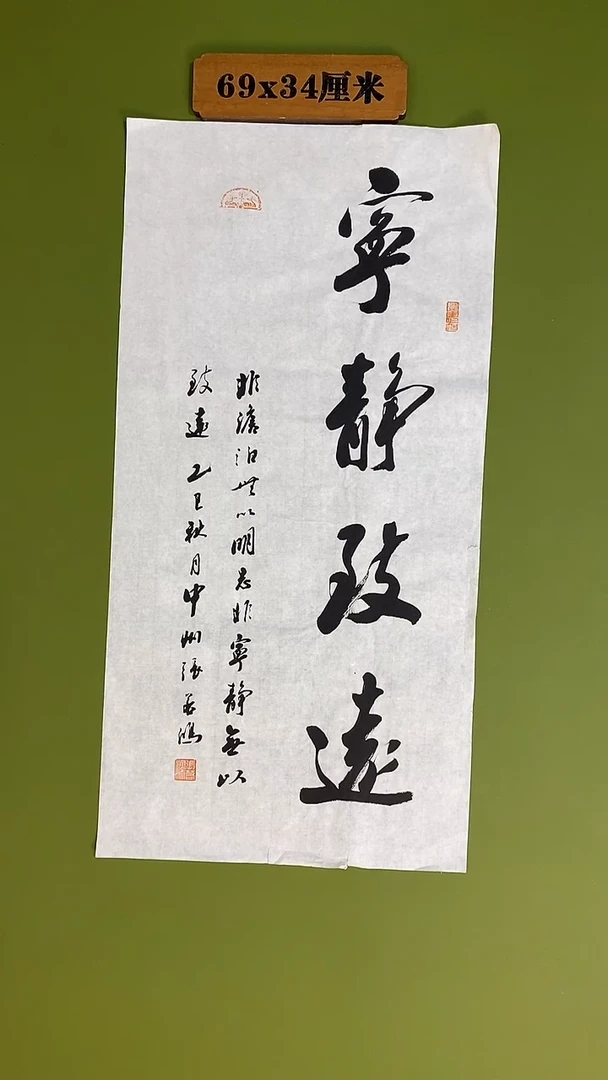 69x34厘米
寧靜致遠
非澹泊無以明志非寧靜無以
致遠乙巳秋月中州張